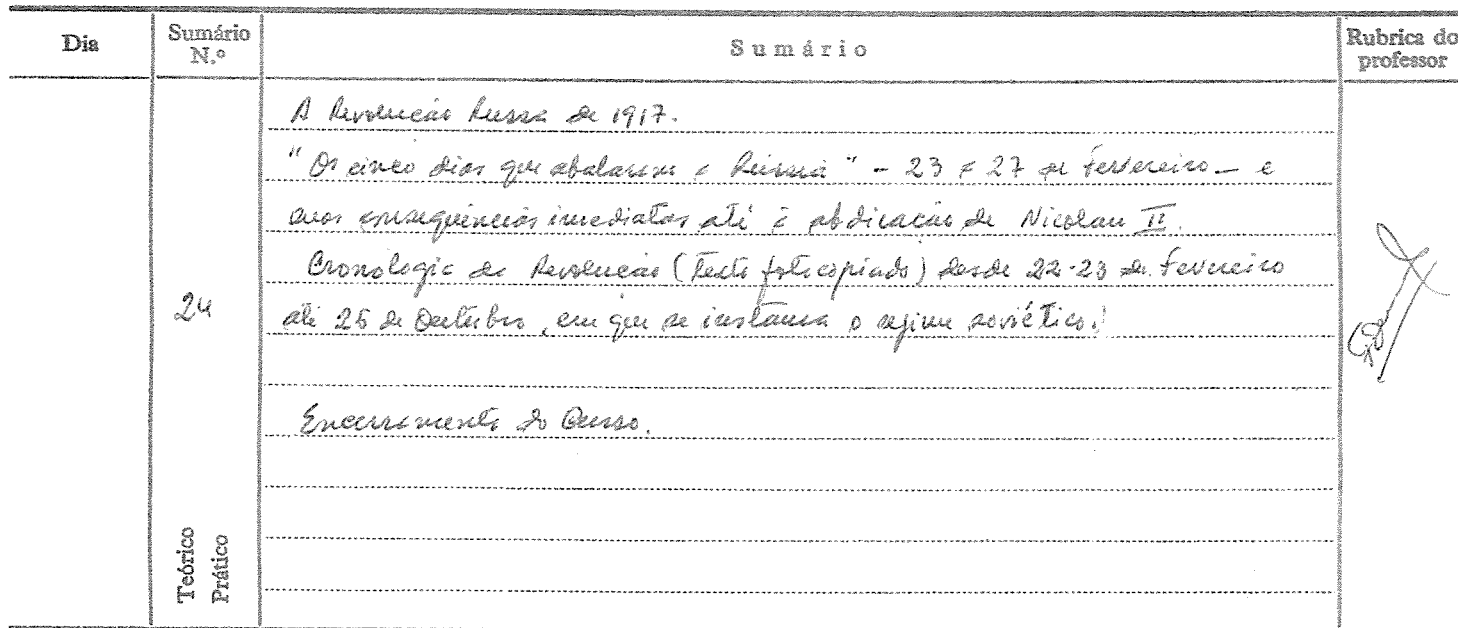 Dia
Sumário N.º
Sumário
Rubrica do professor
A Revolução Russa de 1917.
"Os cinco dias que abalaram a Rússia" - 23 a 27 de Fevereiro - e
suas consequências imediatas até à abdicação de Nicolau II.
Cronologia da Revolução (Texto fotocopiado) desde 22-23 de Fevereiro
24
até 25 de Outubro, em que se instaura o regime soviético.
Encerramento do Curso.
Teórico
Prático